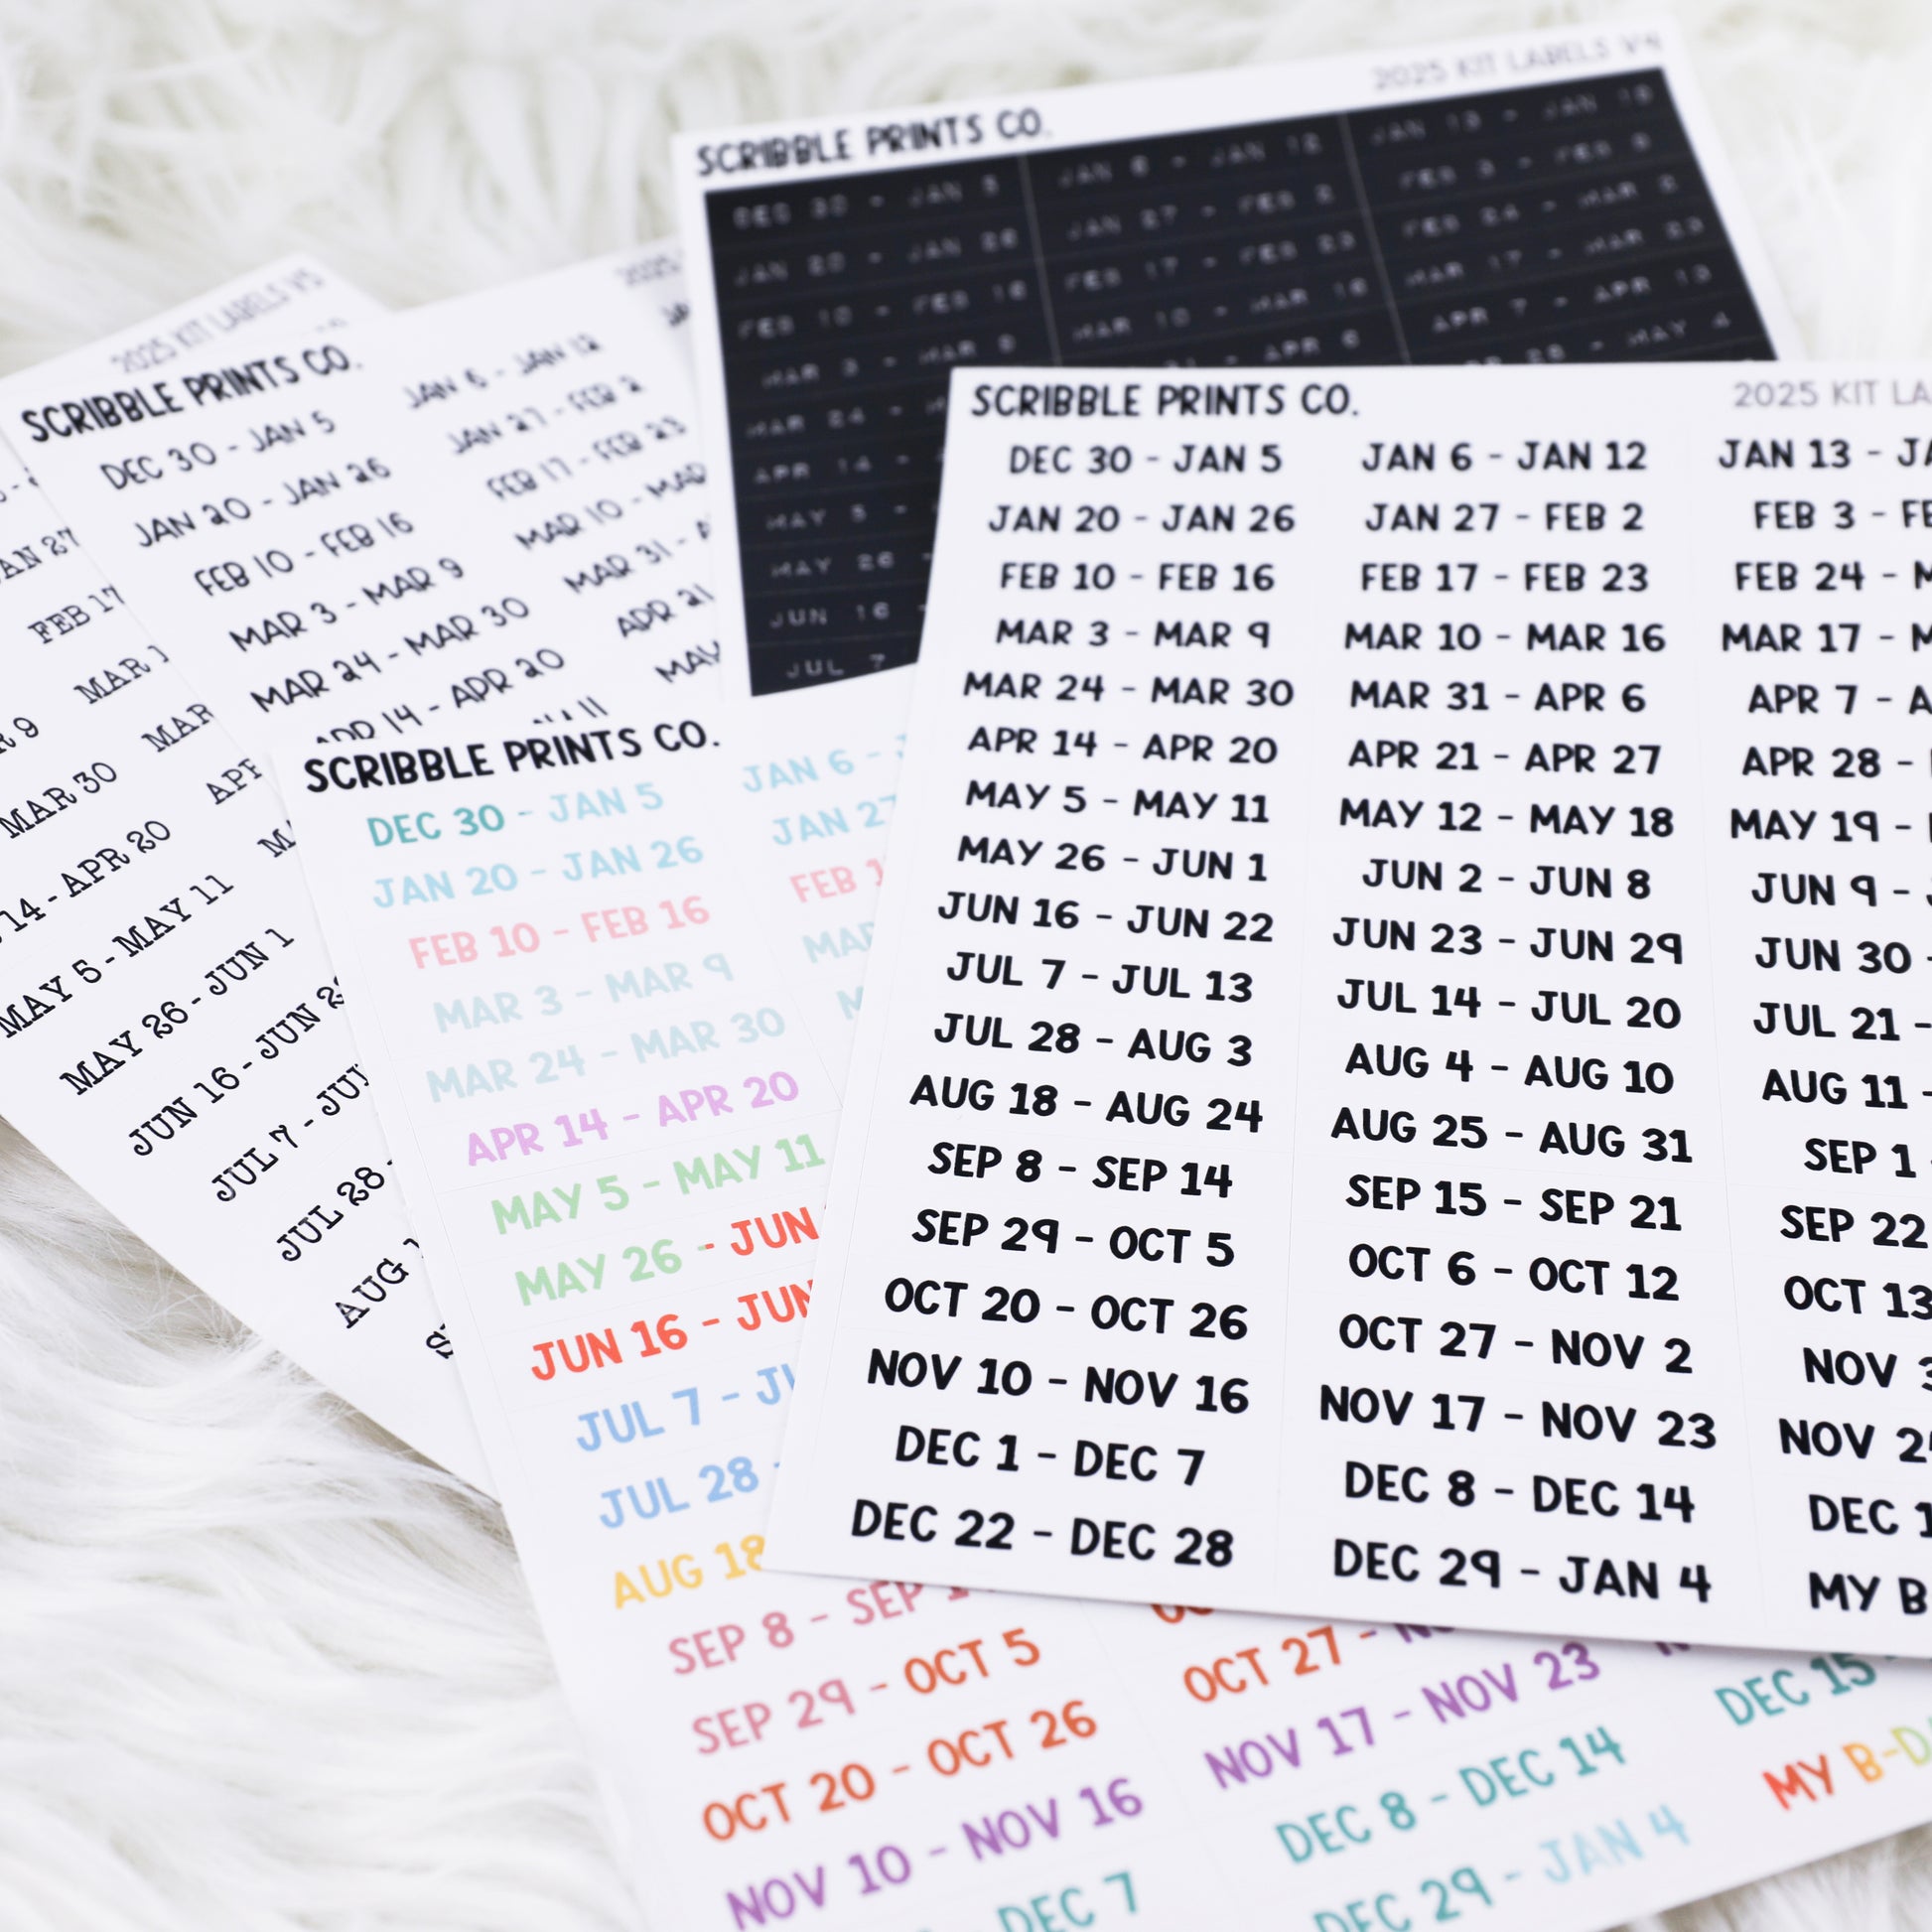 2025 KIT LABELS V4
SCRIBBLE PRINTS CO.
DEC 30 - JAN 5 JAN 6 - JAN 12 JAN 13 - JAN 19
JAN 20 - JAN 26 JAN 27 - FEB 2 FEB 3 - FEB 9
FEB 10 - FEB 16 FEB 17 - FEB 23 FEB 24 - MAR 2
MAR 3 - MAR 9 MAR 10 - MAR 16 MAR 17 - MAR 23
MAR 24 - - APR 6 APR 7 - APR 13
APR 14 - - MAY 4
MAY 5 -
MAY 26 -
JUN 16
JUL 7
2025 KIT LABELS V5
MAR 30 MAR
14 - APR 20
MAY 5 - MAY 11
MAY 26 - JUN 1
JUN 16 - JUN
JUL 7 -
JUL 28 -
AUG
JAN 27
FEB 17
MAR
2025
SCRIBBLE PRINTS CO.
DEC 30 - JAN 5 JAN 6 - JAN 12
JAN 20 - JAN 26 JAN 27 - FEB 2
FEB 10 - FEB 16 FEB 17 - FEB 23
MAR 3 - MAR 9 MAR 10 - MAR
MAR 24 - MAR 30 MAR 31 -
APR 14 - APR 20 APR 21
MAY
SCRIBBLE PRINTS CO.
DEC 30 - JAN 5 JAN 6 -
JAN 20 - JAN 26 JAN 27
FEB 10 - FEB 16 FEB
MAR 3 - MAR 9 MAR
MAR 24 - MAR 30
APR 14 - APR 20
MAY 5 - MAY 11
MAY 26 - JUN
JUN 16 - JUN
JUL 7 -
JUL 28 -
AUG 18
SEP 8 - SEP
SEP 29 - OCT 5 OCT 27 -
OCT 20 - OCT 26 NOV 17 - NOV 23 DEC 15
NOV 10 - NOV 16 DEC 8 - DEC 14 MY B-D
DEC 7 DEC 29 - JAN 4
SCRIBBLE PRINTS CO. 2025 KIT LA
DEC 30 - JAN 5 JAN 6 - JAN 12 JAN 13 - JA
JAN 20 - JAN 26 JAN 27 - FEB 2 FEB 3 - FE
FEB 10 - FEB 16 FEB 17 - FEB 23 FEB 24 - M
MAR 3 - MAR 9 MAR 10 - MAR 16 MAR 17 - M
MAR 24 - MAR 30 MAR 31 - APR 6 APR 7 - A
APR 14 - APR 20 APR 21 - APR 27 APR 28 -
MAY 5 - MAY 11 MAY 12 - MAY 18 MAY 19 -
MAY 26 - JUN 1 JUN 2 - JUN 8 JUN 9 -
JUN 16 - JUN 22 JUN 23 - JUN 29 JUN 30 -
JUL 7 - JUL 13 JUL 14 - JUL 20 JUL 21 -
JUL 28 - AUG 3 AUG 4 - AUG 10 AUG 11 -
AUG 18 - AUG 24 AUG 25 - AUG 31 SEP 1
SEP 8 - SEP 14 SEP 15 - SEP 21 SEP 22
SEP 29 - OCT 5 OCT 6 - OCT 12 OCT 13
OCT 20 - OCT 26 OCT 27 - NOV 2 NOV
NOV 10 - NOV 16 NOV 17 - NOV 23 NOV
DEC 1 - DEC 7 DEC 8 - DEC 14 DEC
DEC 22 - DEC 28 DEC 29 - JAN 4 MY B